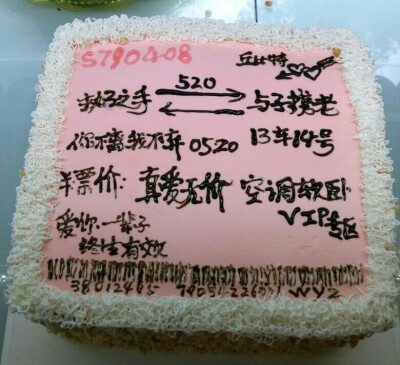 S790408 丘比特
520
执子之手 与子携老
你不离我不弃 0520 13车14号
半票价: 真爱无价 空调软卧
爱你一辈子 VIP专区
终生有效
38012485 7905422603 WYZ